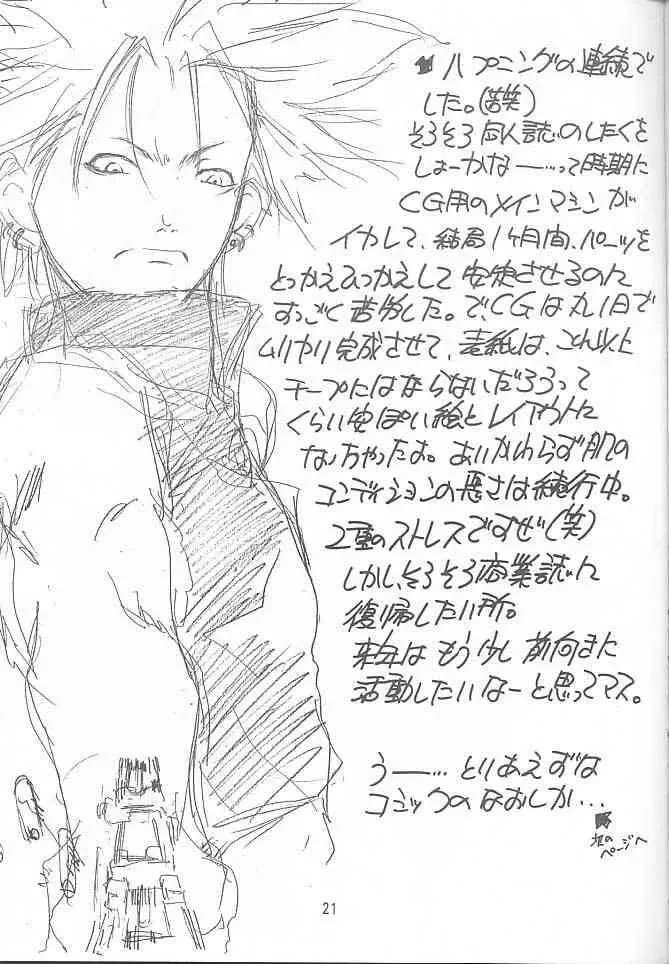 ハプニングの連続で
した。(苦笑)
そろそろ同人誌のしたくを
しよーかなー…って時期に
CG用のメインマシンが
イカレて、結局1ヶ月間、パーツを
とっかえひっかえして安定させるのに
すっごく苦労した。で、CGは丸1日で
ムリヤリ完成させて、表紙は、これ以上
チープにはならないだろうって
くらい安っぽい絵とレイアウトに
なっちゃったよ。あいかわらず肌の
コンディションの悪さは続行中。
2重のストレスですぜ(笑)
しかし、そろそろ商業誌に
復帰したい所。
来年はもう少し前向きに
活動したいなーと思ってマス。
うー…とりあえずは
コミックのなおしか…
次の
ページへ
21